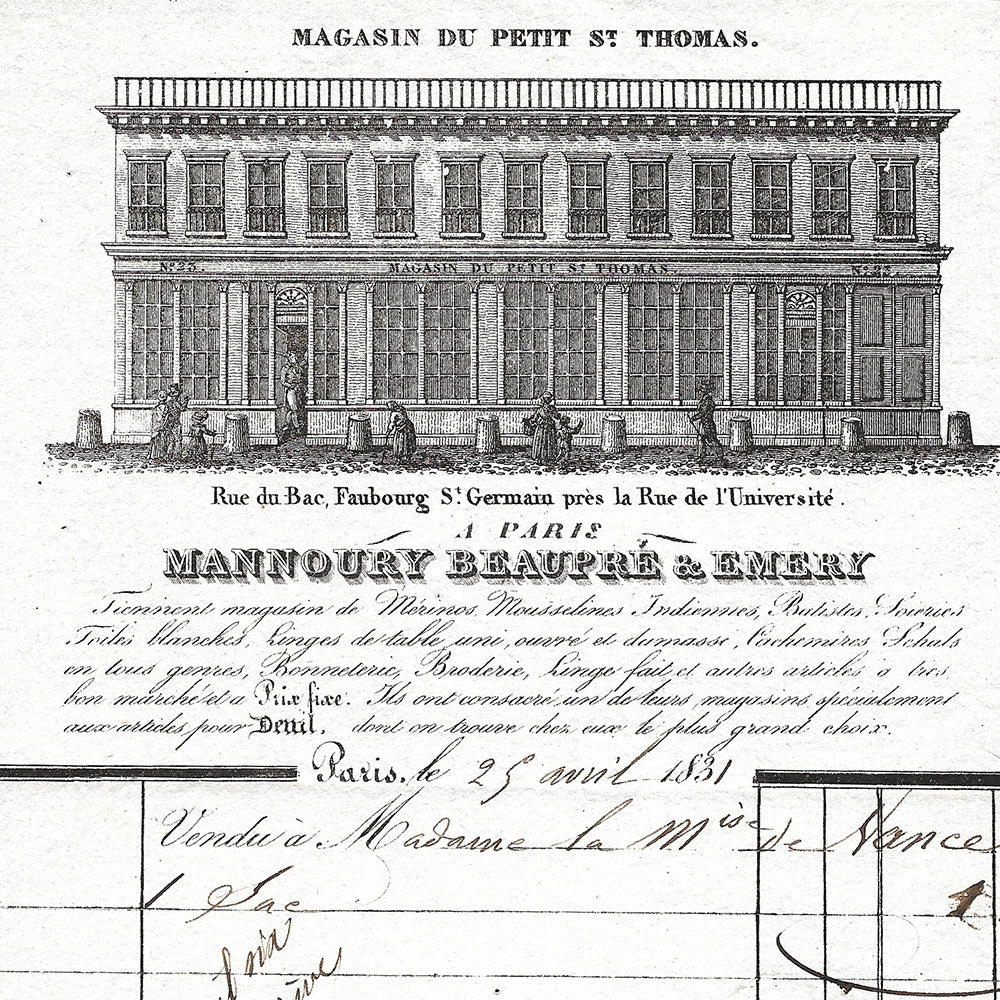 MAGASIN DU PETIT St THOMAS.
No 23. MAGASIN DU PETIT St THOMAS. No 23.
Rue du Bac, Faubourg St Germain près la Rue de l'Université.
A PARIS
MANNOURY BEAUPRÉ & EMERY
Tiennent magasin de Mérinos, Mousselines Indiennes, Batistes, Soieries
Toiles blanches, Linges de table, uni, ouvré et damassé, Cachemires, Schals
en tous genres, Bonneterie, Broderie, Linge fait et autres articles à très
bon marché et à Prix fixe. Ils ont consacré, un de leurs magasins spécialement
aux articles pour Deuil, dont on trouve chez eux le plus grand choix.
Paris, le 25 avril 1831
Vendu à Madame la Mise de Nance
1 Sac 1